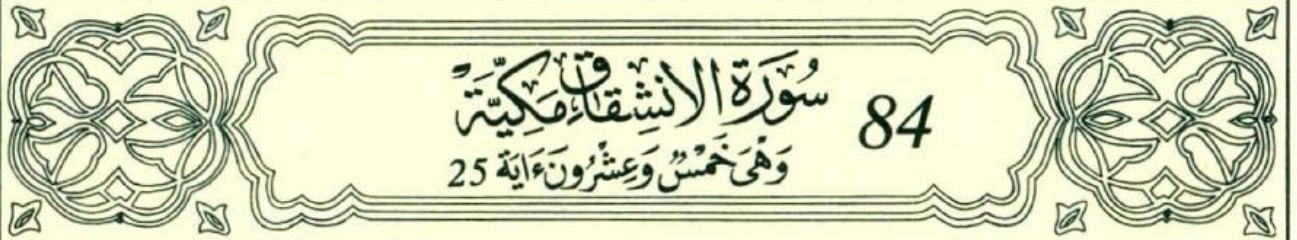 84 سُورَةُ الِانْشِقَاقِ مَكِّيَّةٌ
وَهْيَ خَمْسٌ وَعِشْرُونَ ءَايَةً 25